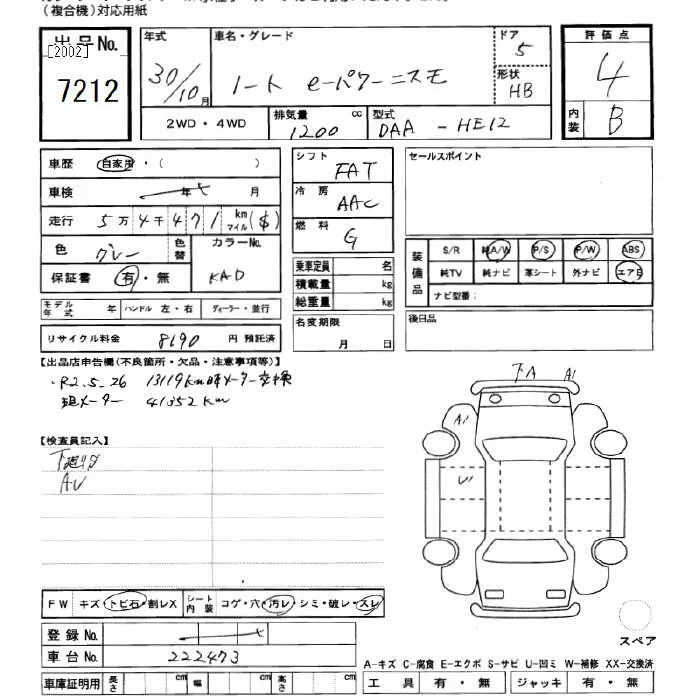 (複合機)対応用紙
出品No.
[2002]
7212
年式
30/10月
車名・グレード
ノート e-パワーニスモ
ドア
5
形状
HB
2WD・4WD
排気量
1200 cc
型式
DAA - HE12
評価点
4
内装
B
車歴 自家用・( )
車検 年 月
走行 5万4千471 km マイル ($)
色 グレー 色替
カラーNo.
KAD
保証書 有・無
モデル年式 年 ハンドル 左・右 ディーラー・並行
リサイクル料金 8190 円 預託済
シフト
FAT
冷房
AAC
燃料
G
乗車定員 名
積載量 kg
総重量 kg
名変期限
月 日
セールスポイント
装備品
S/R 純A/W P/S P/W ABS
純TV 純ナビ 革シート 外ナビ エアB
ナビ型番:
後日品
【出品店申告欄(不良箇所・欠品・注意事項等)】
・R2.5.26 13119km時メーター交換
現メーター 41352km
【検査員記入】
下廻りサ
AU
下A A1
A1
U1
FW キズ・トビ石・割レX シート内装 コゲ・穴・汚レ・シミ・破レ・スレ
登録No.
車台No. 222473
車庫証明用 長さ cm 幅 cm 高さ cm
スペア
A-キズ C-腐食 E-エクボ S-サビ U-凹ミ W-補修 XX-交換済
工具 有・無 ジャッキ 有・無